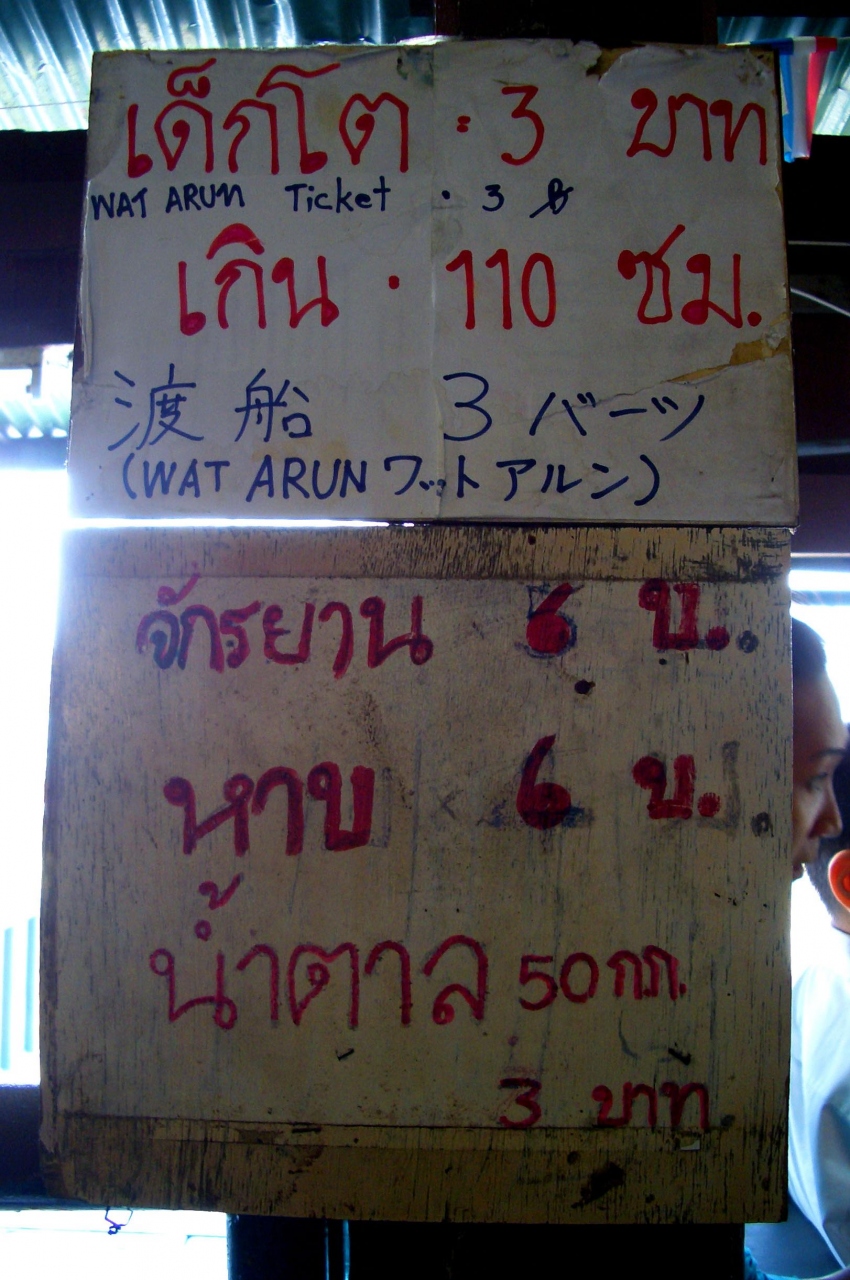 เด็กโต : 3 บาท
WAT ARUN Ticket . 3 ฿
เกิน . 110 ซม.
渡船 3 バーツ
(WAT ARUN ワットアルン)
จักรยาน 6 บ.
หาบ 6 บ.
น้ำตาล 50 กก.
3 บาท